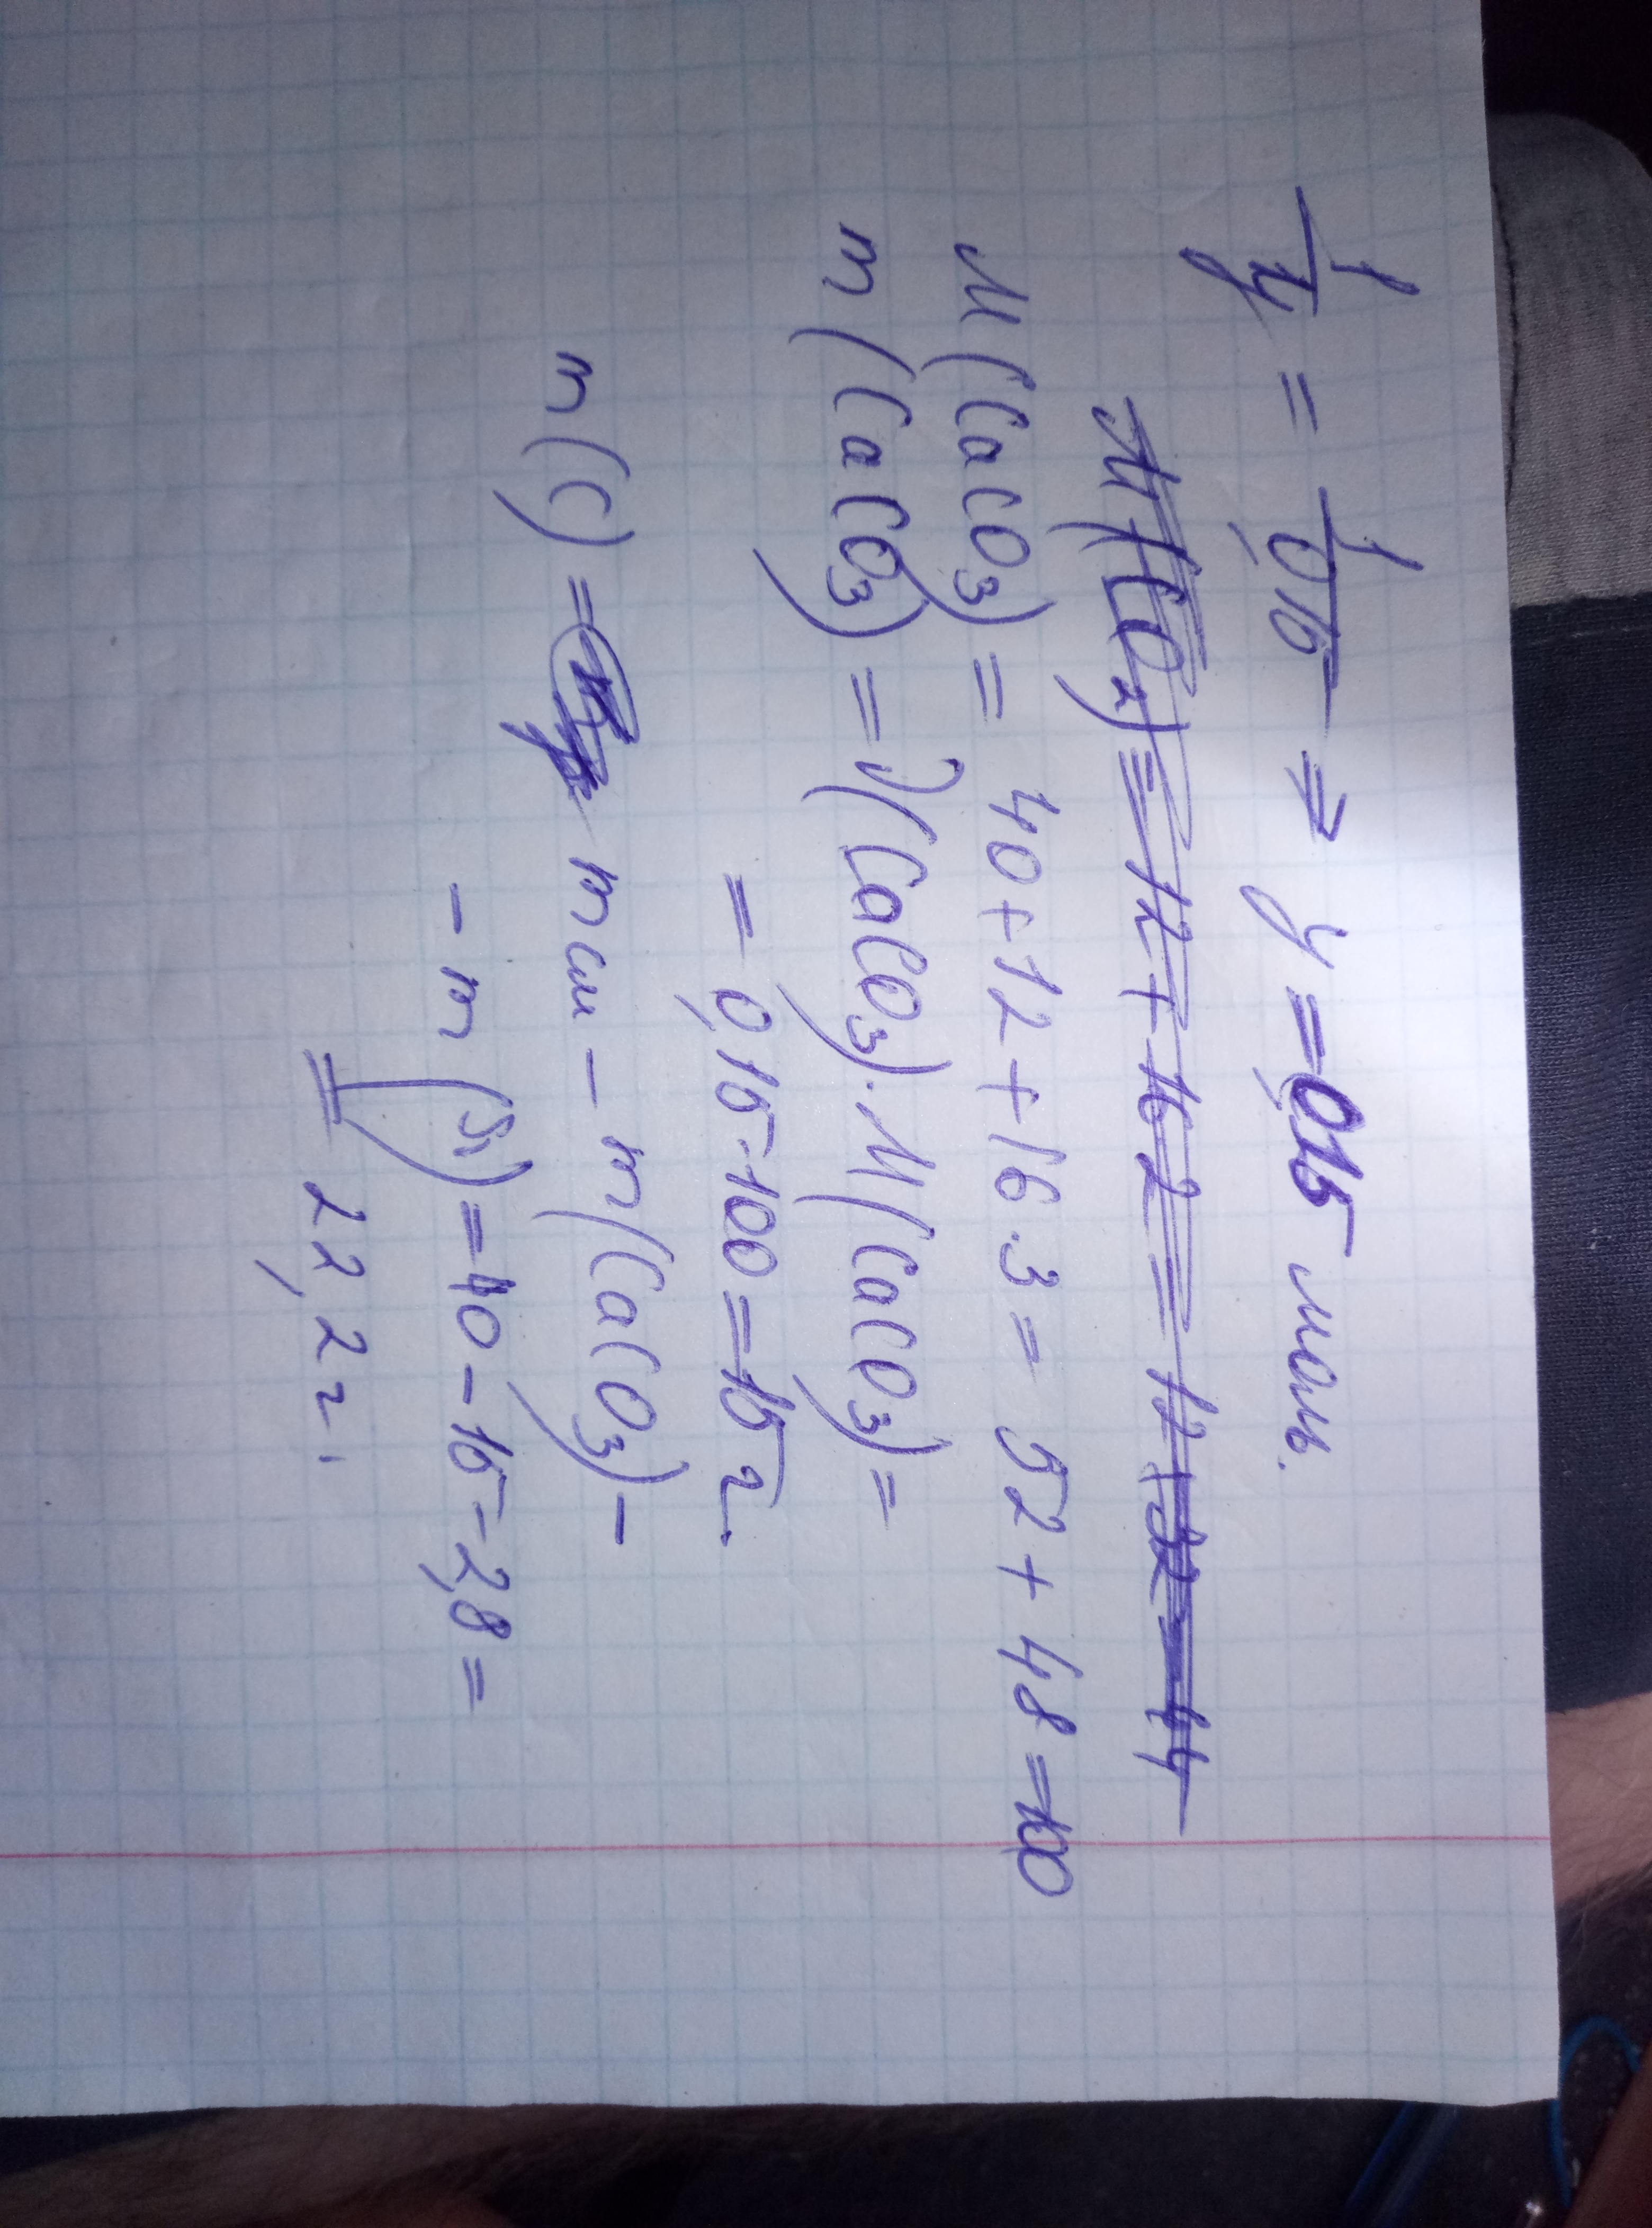 1/y = 1/0,15 ⇒ y = 0,15 моль.
M(CO2) = 12 + 16·2 = 12 + 32 = 44
M(CaCO3) = 40 + 12 + 16·3 = 52 + 48 = 100
m(CaCO3) = ν(CaCO3)·M(CaCO3) =
= 0,15·100 = 15 г.
m(C) = m см – m(CaCO3) –
– m(Si) = 40 – 15 – 2,8 =
= 22,2 г.